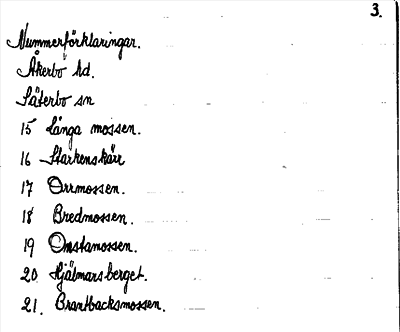 3.
Nummerförklaringar.
Åkerbo hd.
Säterbo sn
15 Långa mossen.
16 Starkenskärr
17 Orrmossen.
18 Bredmossen.
19 Onstamossen.
20 Hjälmarsberget.
21. Brantbacksmossen.